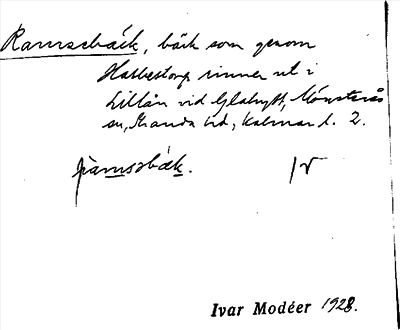 Ramsebäck, bäck som genom
Halbestorp rinner ut i
Lillån vid Glabytt, Mönsterås
sn, Stranda hd, Kalmar l. 2.
ramsbäk. IV
Ivar Modéer 1928.